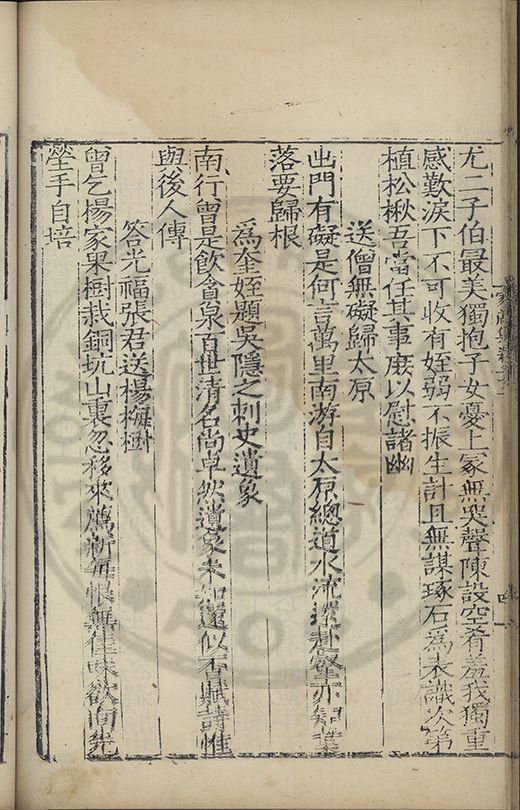 尤二子伯最美獨抱子女憂上冢無哭聲陳設空肴羞我獨重
感歎淚下不可收有姪弱不振生計且無謀琢石為表識次第
植松楸吾當任其事庶以慰諸幽
送僧無礙歸太原
出門有礙是何言萬里南游自太原總道水流還赴壑亦知葉
落要歸根
為奎姪題吳隱之刺史遺象
南行曾是飲貪泉百世清名尚卓然遺象未知還似否賦詩惟
與後人傳
答光福張君送楊梅樹
曾乞楊家果樹栽銅坑山裏忽移來薦新每恨無佳味欲向先
塋手自培